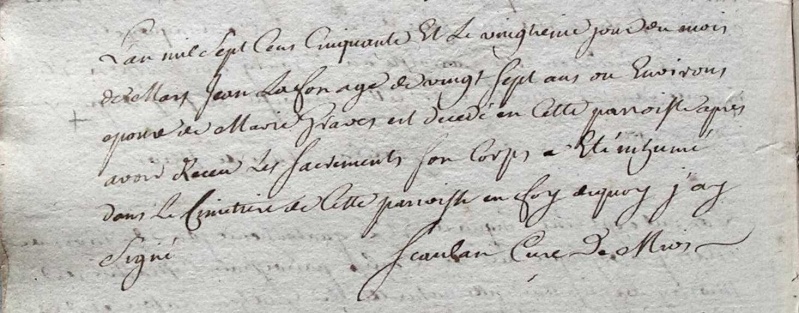 L'an mil sept Cens Cinquante Et Le vingtieme jour du mois
de Mars Jean Lafon age de vingt sept ans ou Environs
epoux de Marie est decedé en Cette parroisse apres
avoir Receu Les Sacrements son Corps a Eté inhumé
dans Le Cimetiere de Cette parroisse en foy dequoy j'ay
Signé Curé De Mios